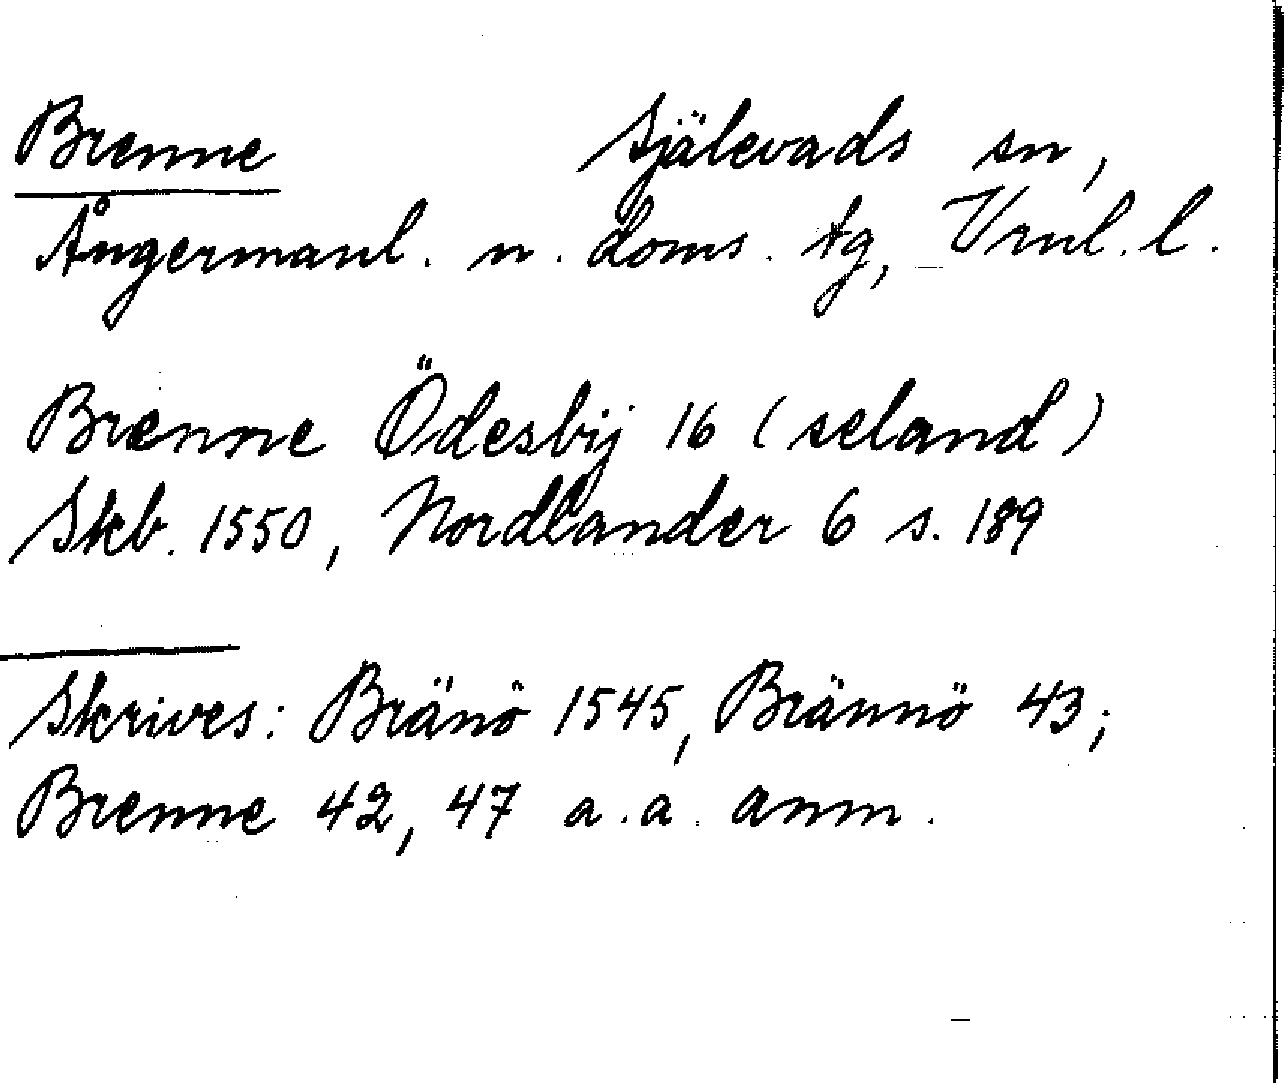 Brenne Själevads sn,
Ångermanl. n. doms. tg, Vrnl. l.
Brenne Ödesbij 16 (seland)
Skb. 1550, Nordlander 6 s. 189
Skrives: Bränö 1545, Brännö 43;
Brenne 42, 47 a.a. anm.